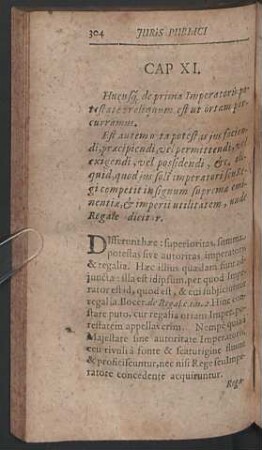 304 JURIS PUBLICI
CAP XI.
Hucusq; de prima Imperatoris po-
testate reliquum est ut ortam per-
curramus.
Est autem ea potestas jus facien-
di, præcipiendi, vel permittendi, vel
exigendi, vel possidendi, &c. ali-
quid, quod jus soli imperatori seu Re-
gi competit in signum supremæ emi-
nentiæ, & imperii utilitatem, unde
Regale dicitur.
Differunt hæc: superioritas, summa
potestas sive autoritas imperatoris
& regalia. Hæc illius quasdam sunt
causæ: illa est id ipsum, per quod Impe-
rator est id, quod est, & cui subjiciuntur
regalia. Bocer. de Regal. c. 1. n. 2 Hinc
stare puto, cur regalia ortam Imper. po-
testatem appellaverim. Nempe quia à
Majestate sive autoritate Imperatoris,
ceu rivuli à fonte & scaturigine fluunt
& proficiscuntur, nec nisi Rege seu Impe-
ratore concedente acquiruntur.
Rega-